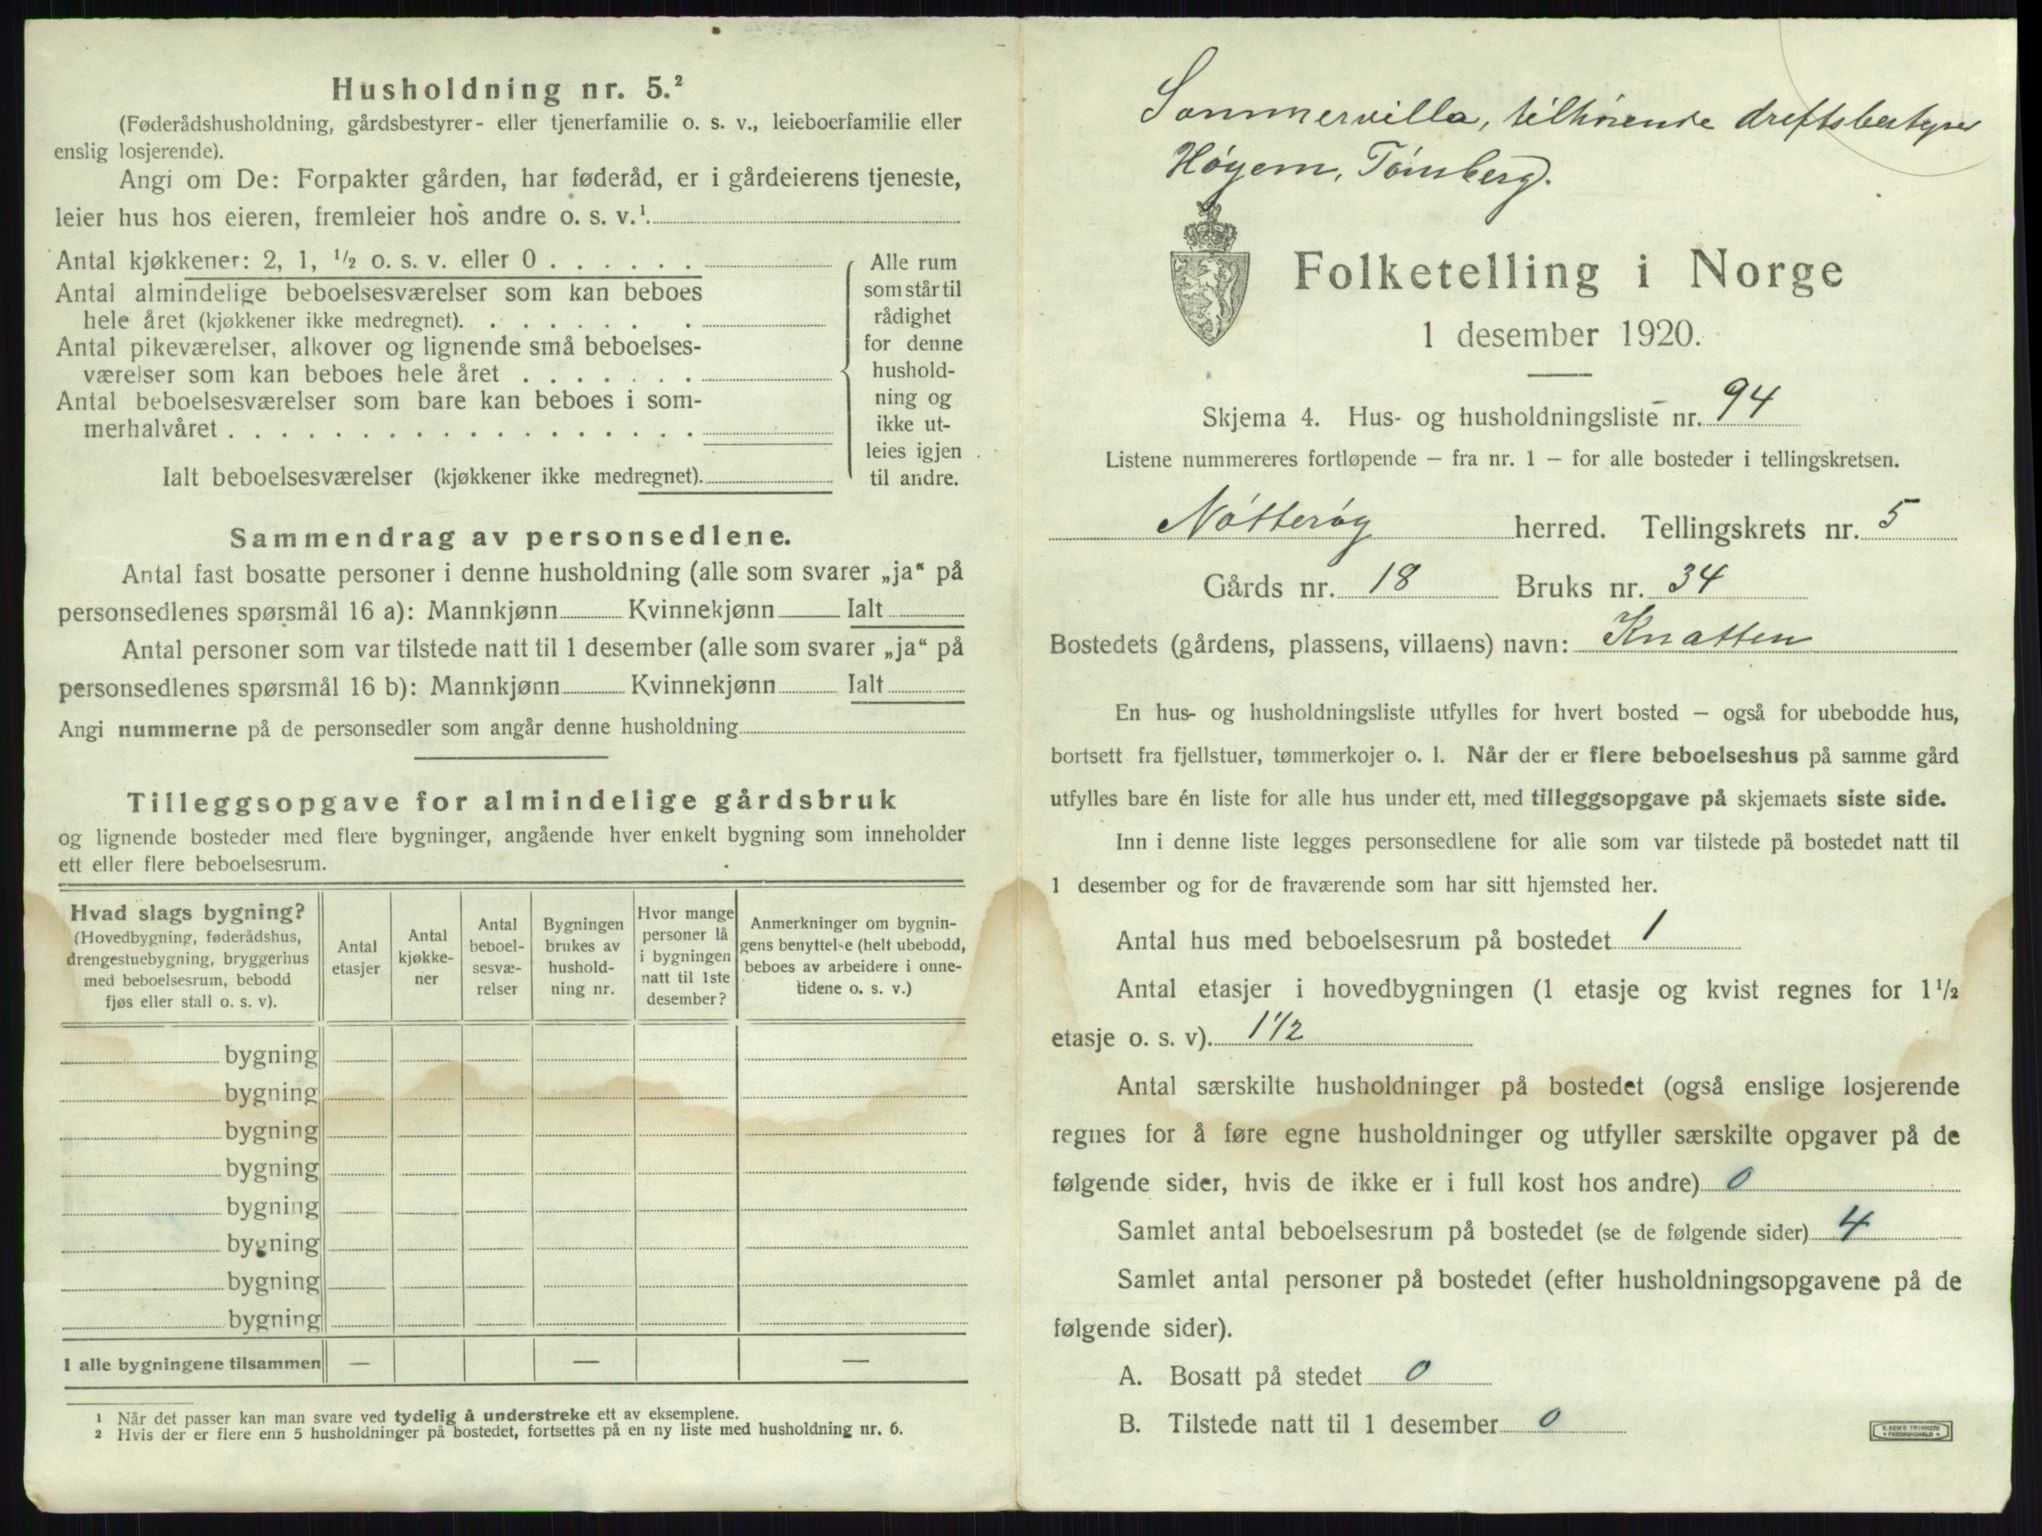 Husholdning nr. 5.²
(Føderådshusholdning, gårdsbestyrer- eller tjenerfamilie o. s. v., leieboerfamilie eller
enslig losjerende).
Angi om De: Forpakter gården, har føderåd, er i gårdeierens tjeneste,
leier hus hos eieren, fremleier hos andre o. s. v.¹
Antal kjøkkener: 2, 1, ½ o. s. v. eller 0 . . . . . .
Antal almindelige beboelsesværelser som kan beboes
hele året (kjøkkener ikke medregnet). . . . . . . .
Antal pikeværelser, alkover og lignende små beboelses-
værelser som kan beboes hele året . . . . . . .
Antal beboelsesværelser som bare kan beboes i som-
merhalvåret . . . . . . . . . . . . . . . . . .
Ialt beboelsesværelser (kjøkkener ikke medregnet).
Alle rum
som står til
rådighet
for denne
hushold-
ning og
ikke ut-
leies igjen
til andre.
Sammendrag av personsedlene.
Antal fast bosatte personer i denne husholdning (alle som svarer „ja“ på
personsedlenes spørsmål 16 a): Mannkjønn Kvinnekjønn Ialt
Antal personer som var tilstede natt til 1 desember (alle som svarer „ja“ på
personsedlenes spørsmål 16 b): Mannkjønn Kvinnekjønn Ialt
Angi nummerne på de personsedler som angår denne husholdning
Tilleggsopgave for almindelige gårdsbruk
og lignende bosteder med flere bygninger, angående hver enkelt bygning som inneholder
ett eller flere beboelsesrum.
Hvad slags bygning?
(Hovedbygning, føderådshus,
drengestuebygning, bryggerhus
med beboelsesrum, bebodd
fjøs eller stall o. s. v).
Antal
etasjer
Antal
kjøkke-
ner
Antal
beboel-
sesvæ-
relser
Bygningen
brukes av
hushold-
ning nr.
Hvor mange
personer lå
i bygningen
natt til 1ste
desember?
Anmerkninger om bygnin-
gens benyttelse (helt ubebodd,
beboes av arbeidere i onne-
tidene o. s. v.)
bygning
bygning
bygning
bygning
bygning
bygning
bygning
bygning
I alle bygningene tilsammen — — —
¹ Når det passer kan man svare ved tydelig å understreke ett av eksemplene.
² Hvis der er flere enn 5 husholdninger på bostedet, fortsettes på en ny liste med husholdning nr. 6.
Sommervilla, tilhørende driftsbestyrer
Høyem, Tønsberg.
Folketelling i Norge
1 desember 1920.
Skjema 4. Hus- og husholdningsliste nr. 94
Listene nummereres fortløpende – fra nr. 1 – for alle bosteder i tellingskretsen.
Nøtterøy herred. Tellingskrets nr. 5
Gårds nr. 18 Bruks nr. 34
Bostedets (gårdens, plassens, villaens) navn: Knatten
En hus- og husholdningsliste utfylles for hvert bosted – også for ubebodde hus,
bortsett fra fjellstuer, tømmerkojer o. l. Når der er flere beboelseshus på samme gård
utfylles bare én liste for alle hus under ett, med tilleggsopgave på skjemaets siste side.
Inn i denne liste legges personsedlene for alle som var tilstede på bostedet natt til
1 desember og for de fraværende som har sitt hjemsted her.
Antal hus med beboelsesrum på bostedet 1
Antal etasjer i hovedbygningen (1 etasje og kvist regnes for 1½
etasje o. s. v). 1½
Antal særskilte husholdninger på bostedet (også enslige losjerende
regnes for å føre egne husholdninger og utfyller særskilte opgaver på de
følgende sider, hvis de ikke er i full kost hos andre) 0
Samlet antal beboelsesrum på bostedet (se de følgende sider) 4
Samlet antal personer på bostedet (efter husholdningsopgavene på de
følgende sider).
A. Bosatt på stedet 0
B. Tilstede natt til 1 desember 0